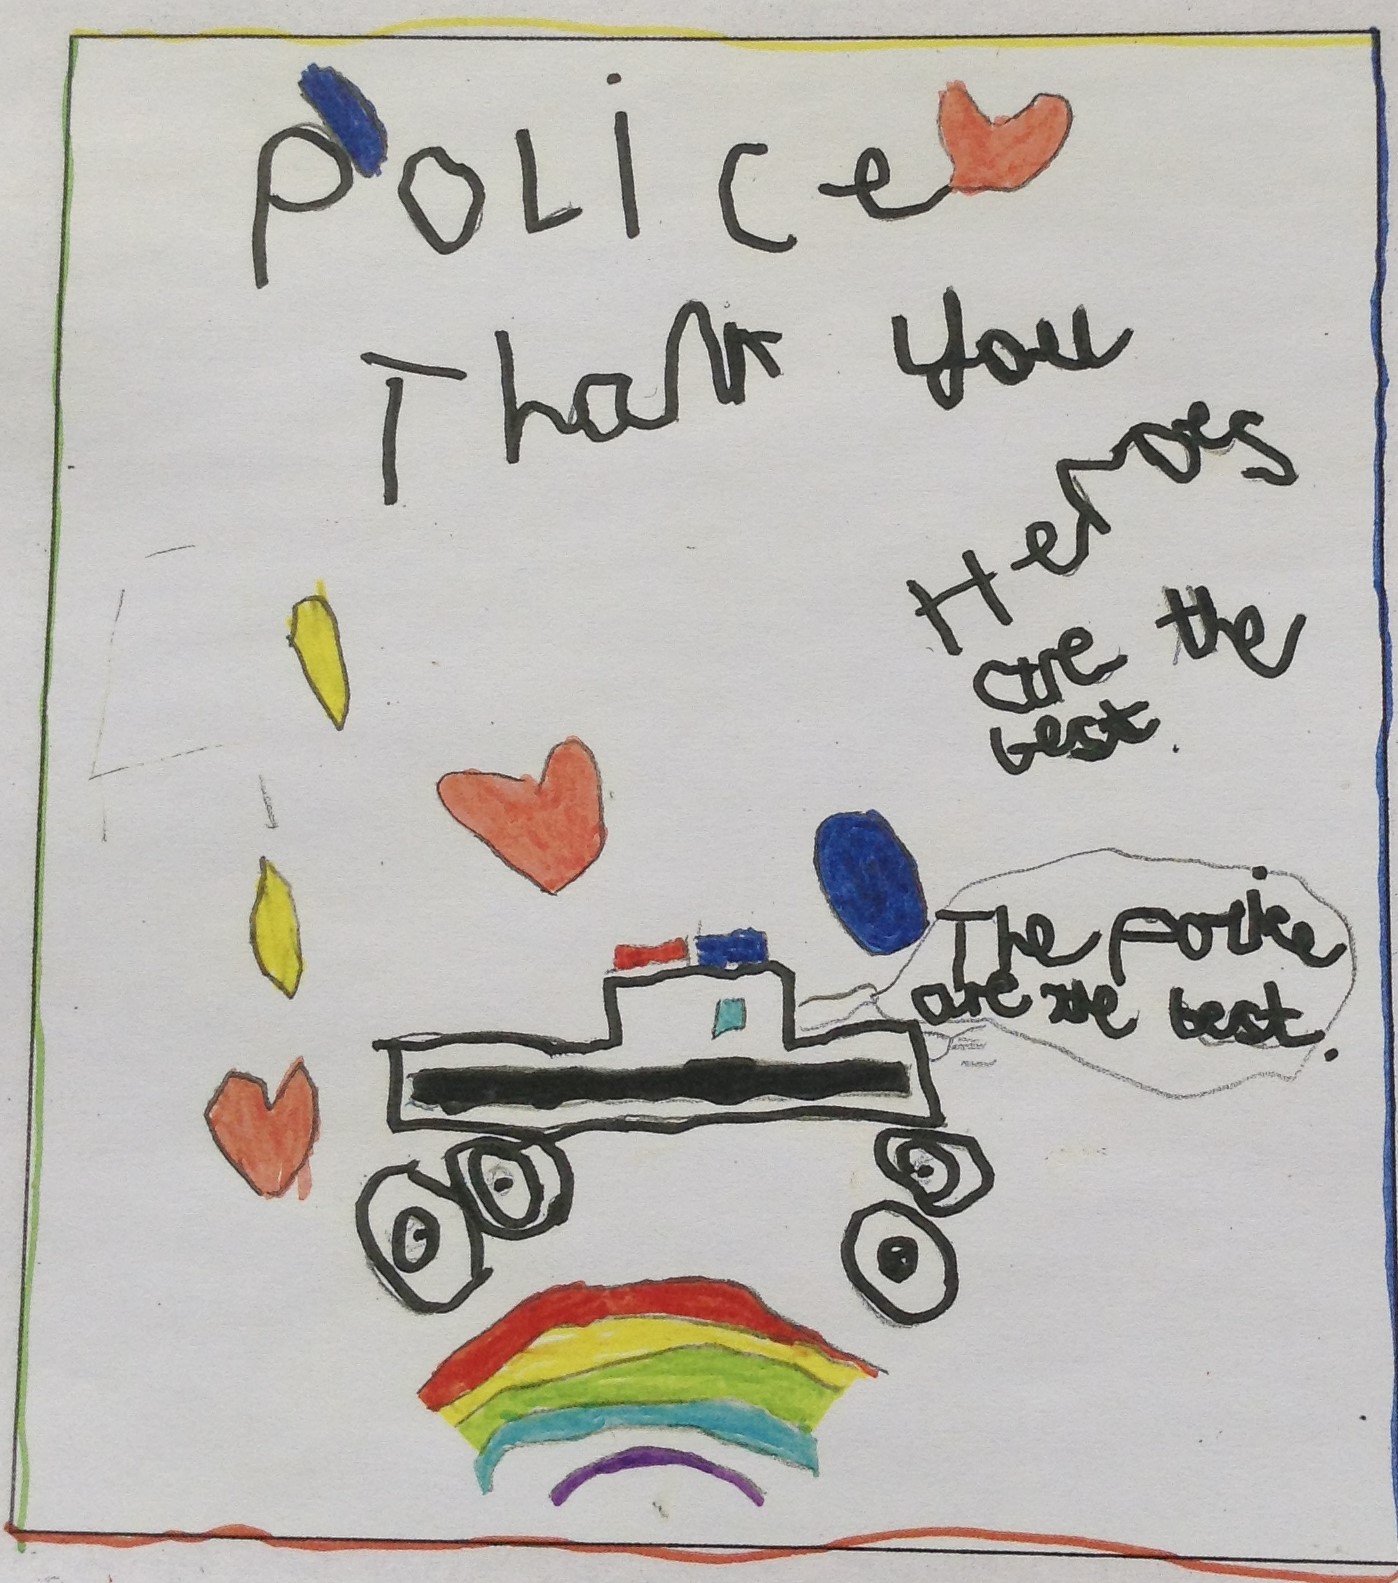 Police
Thank you
Heroes
are the
best.
The
are the best.